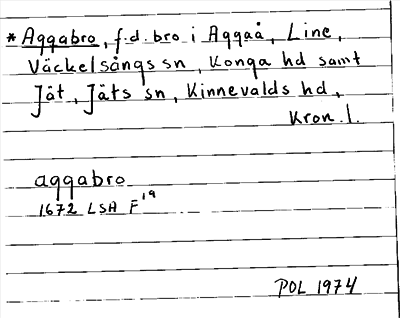 * Aggabro, f.d. bro i Aggaå, Line,
Väckelsångs sn, Konga hd samt
Jät, Jäts sn, Kinnevalds hd,
Kron. l.
aggabro
1672 LSA F 19
POL 1974